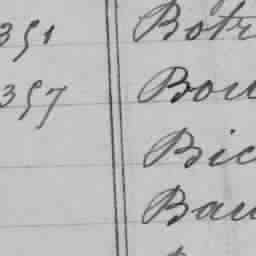 351 Botr
357 Bou
Bic
Bau